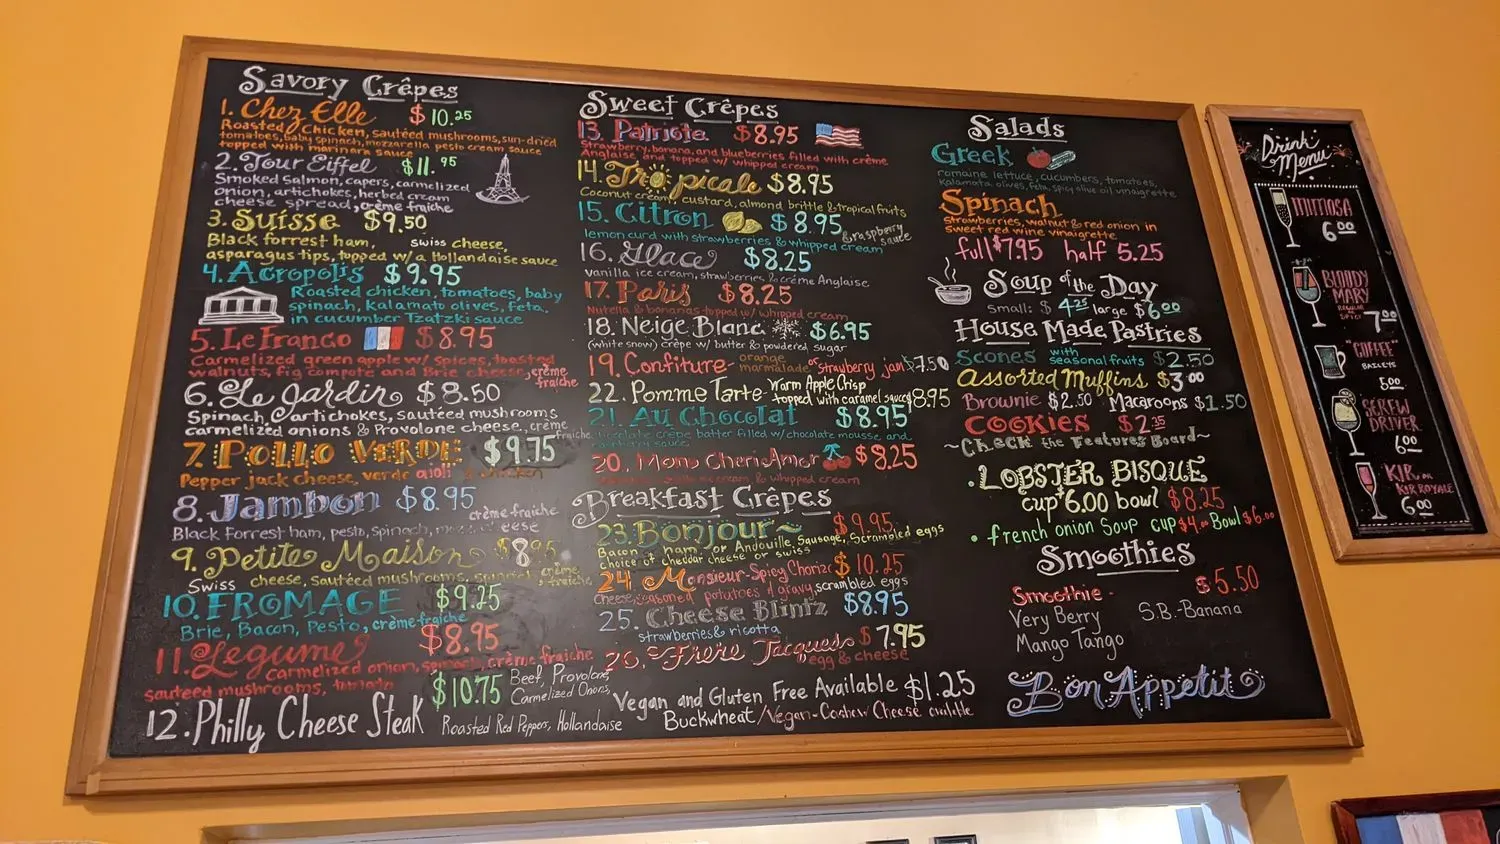 Savory Crêpes
1. Chez Elle $10.25
Roasted Chicken, sautéed mushrooms, sun-dried
tomatoes, baby spinach, mozzarella pesto cream sauce
topped with marinara sauce
2. Tour Eiffel $11.95
Smoked Salmon, capers, carmelized
onion, artichokes, herbed cream
cheese spread, crème fraiche
3. Suisse $9.50
Black forrest ham, swiss cheese,
asparagus tips, topped w/ a Hollandaise sauce
4. Acropolis $9.95
Roasted chicken, tomatoes, baby
spinach, Kalamata olives, feta,
in cucumber Tzatzki sauce
5. Le Franco $8.95
Carmelized green apple w/ spices, toasted
walnuts, fig compote and Brie cheese, crème
fraiche
6. Le Jardin $8.50
Spinach, artichokes, sautéed mushrooms
carmelized onions & Provolone cheese, crème
fraiche
7. Pollo Verde $9.75
Pepper jack cheese, verde aioli & chicken
8. Jambon $8.95
crème fraiche
Black Forrest ham, pesto, spinach,
9. Petite Maison $8.95
Swiss cheese, sautéed mushrooms, crème
fraiche
10. FROMAGE $9.25
Brie, Bacon, Pesto, crème fraiche
11. Legume $8.95
carmelized onion, spinach, crème fraiche
sauteed mushrooms, tomato
12. Philly Cheese Steak $10.75 Beef, Provolone,
Carmelized Onions,
Roasted Red Peppers, Hollandaise
Sweet Crêpes
13. Patriote $8.95
Strawberry, banana, and blueberries filled with crème
Anglaise and topped w/ whipped cream
14. Tropicale $8.95
Coconut cream, custard, almond brittle & tropical fruits
15. Citron $8.95
lemon curd with strawberries & whipped cream & raspberry
sauce
16. Glace $8.25
vanilla ice cream, strawberries, & crème Anglaise
17. Paris $8.25
Nutella & bananas topped w/ whipped cream
18. Neige Blanc $6.95
(white snow) crêpe w/ butter & powdered sugar
19. Confiture- orange marmalade or strawberry jam $7.50
22. Pomme Tarte- Warm Apple Crisp
topped with caramel sauce $8.95
21. Au Chocolat $8.95
chocolate crêpe batter filled w/ chocolate mousse and
20. Mon Cheri Amor $8.25
& whipped cream
Breakfast Crêpes
23. Bonjour~ $9.95
Bacon, ham, or Andouille, Sausage, Scrambled eggs
choice of cheddar cheese or swiss
24. Monsieur-Spicy Chorizo $10.25
Cheese, seasoned potatoes & gravy, scrambled eggs
25. Cheese Blintz $8.95
strawberries & ricotta
26. Frère Jacques $7.95
egg & cheese
Vegan and Gluten Free Available $1.25
Buckwheat/Vegan-Cashew Cheese available
Salads
Greek
romaine lettuce, cucumbers, tomatoes,
Kalamata olives, feta, spicy olive oil vinaigrette
Spinach
strawberries, walnut & red onion in
Sweet red wine vinaigrette
full $7.95 half 5.25
Soup of the Day
Small: $4.25 large $6.00
House Made Pastries
Scones with seasonal fruits $2.50
Assorted Muffins $3.00
Brownie $2.50 Macaroons $1.50
Cookies $2.35
~Check the Features Board~
. LOBSTER BISQUE
cup $6.00 bowl $8.25
• french onion Soup cup $4.00 Bowl $6.00
Smoothies
Smoothie - $5.50
Very Berry S.B.-Banana
Mango Tango
Bon Appetit
Drink Menu
MIMOSA
6.00
BLOODY
MARY
REGULAR
OR
SPICY
7.00
"COFFEE"
BAILEYS
5.00
SCREW
DRIVER
6.00
KIR OR
KIR ROYALE
6.00